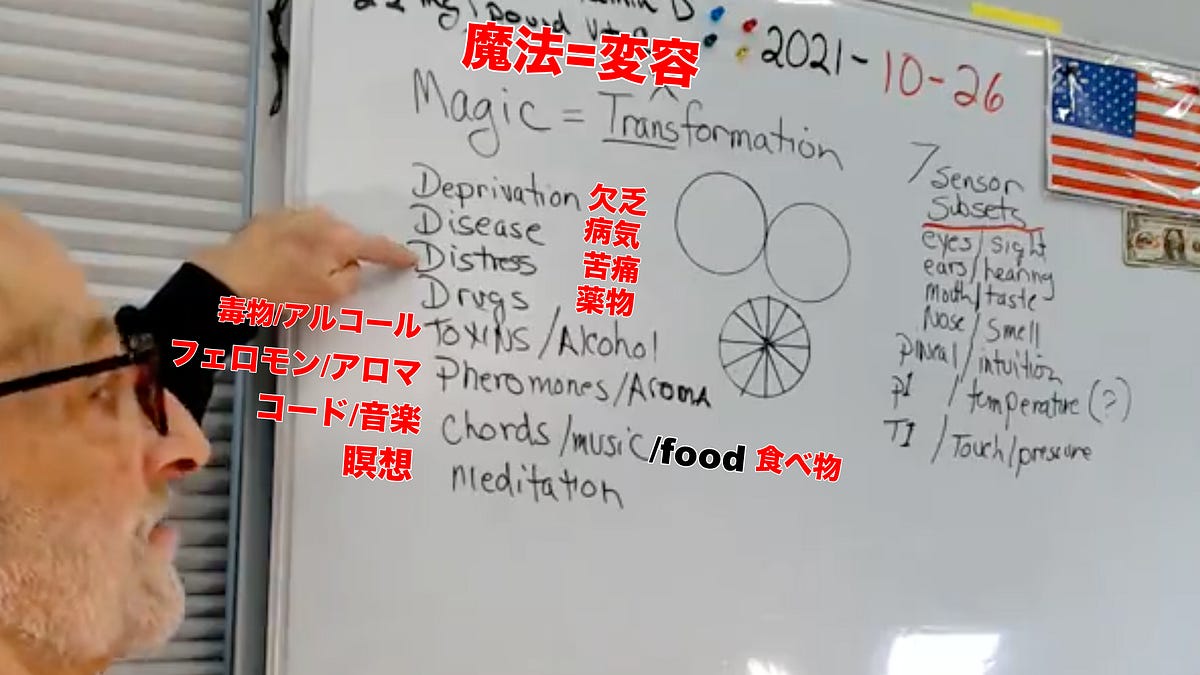 mg/Dound Vit
D
2021-10-26
魔法=変容
Magic = Transformation
Deprivation 欠乏
Disease 病気
Distress 苦痛
Drugs 薬物
毒物/アルコール TOXINS/Alcohol
フェロモン/アロマ Pheromones/Aroma
コード/音楽 Chords/music/food 食べ物
瞑想 Meditation
7 Sensor
Subsets
eyes/sight
ears/hearing
mouth/taste
Nose/Smell
pineal/intuition
PI/temperature(?)
TI/Touch/pressure